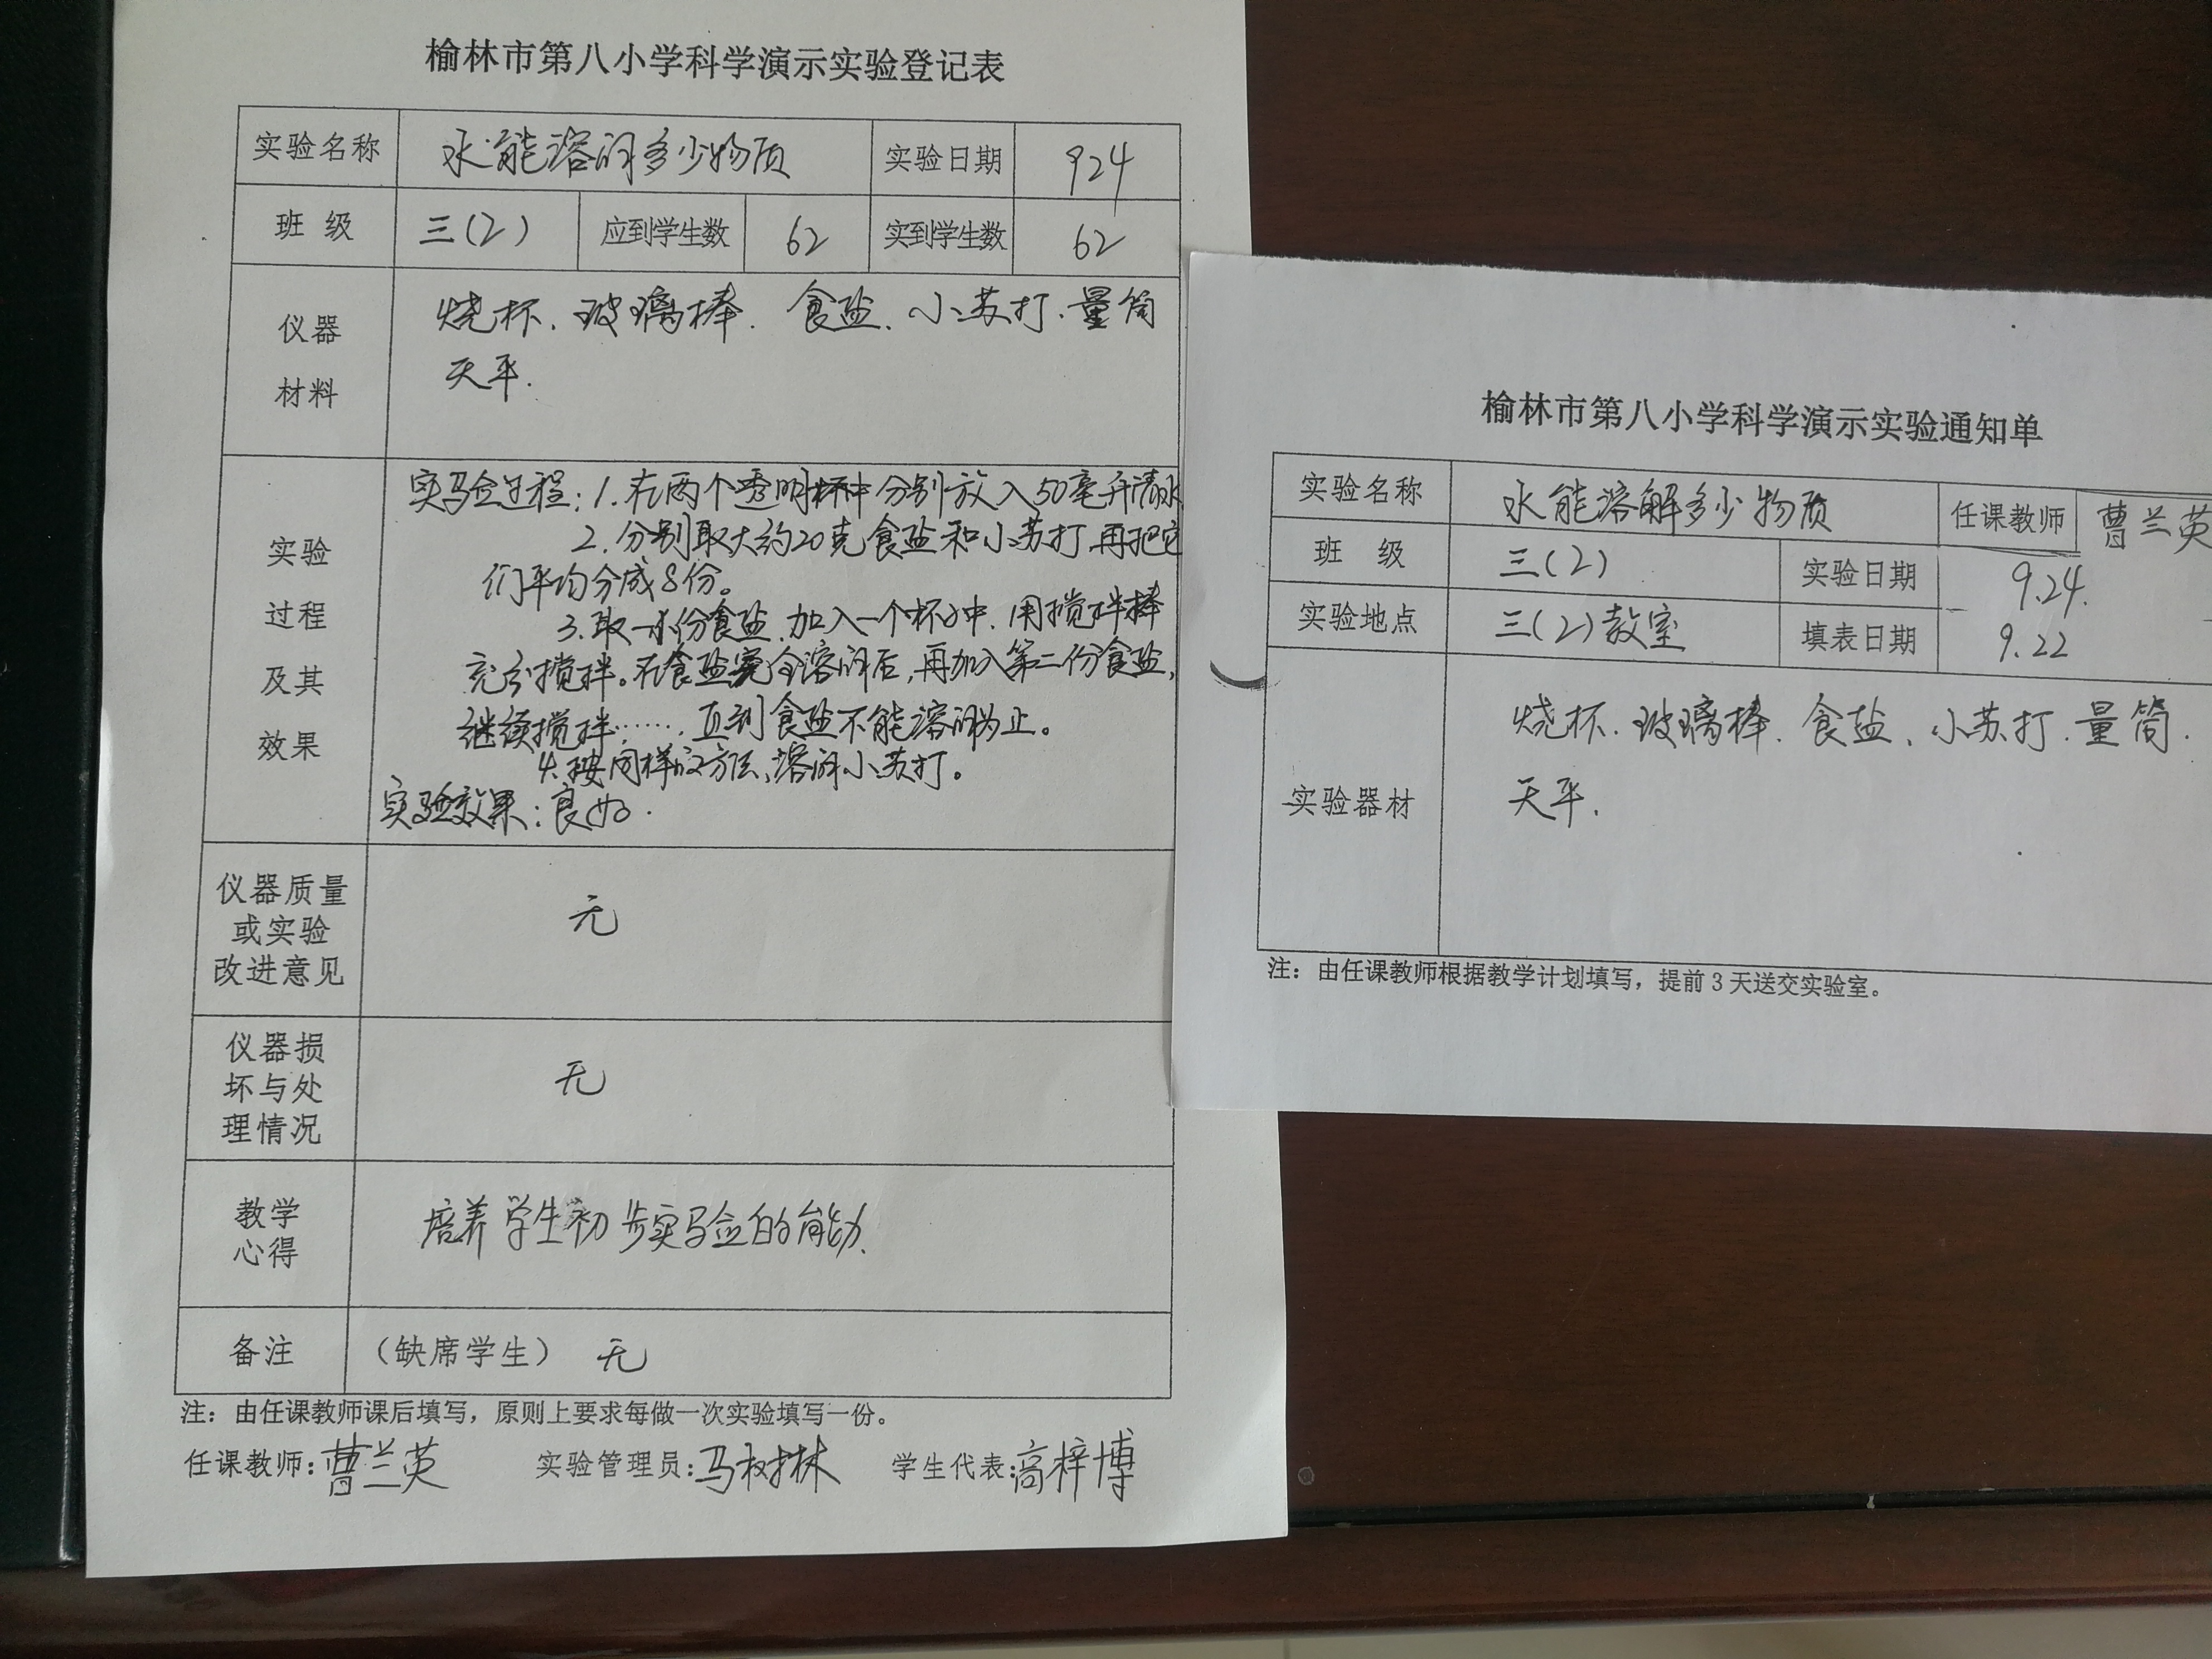 榆林市第八小学科学演示实验登记表
实验名称 水能溶解多少物质 实验日期 9.24
班 级 三(2) 应到学生数 62 实到学生数 62
仪器
材料
烧杯、玻璃棒、食盐、小苏打、量筒
天平.
实验
过程
及其
效果
实验过程:1.在两个透明杯中分别放入50毫升清水
2.分别取大约20克食盐和小苏打,再把它
们平均分成8份。
3.取一小份食盐,加入一个杯子中,用搅拌棒
充分搅拌。在食盐完全溶解后,再加入第二份食盐,
继续搅拌……,直到食盐不能溶解为止。
4.按同样的方法,溶解小苏打。
实验效果:良好.
仪器质量
或实验
改进意见
无
仪器损
坏与处
理情况
无
教学
心得
培养学生初步实验的能力.
备注 (缺席学生) 无
注:由任课教师课后填写,原则上要求每做一次实验填写一份。
任课教师:曹兰英 实验管理员:马树林 学生代表:高梓博
榆林市第八小学科学演示实验通知单
实验名称 水能溶解多少物质 任课教师 曹兰英
班 级 三(2) 实验日期 9.24.
实验地点 三(2)教室 填表日期 9.22
实验器材
烧杯.玻璃棒.食盐、小苏打.量筒.
天平.
注:由任课教师根据教学计划填写,提前3天送交实验室。